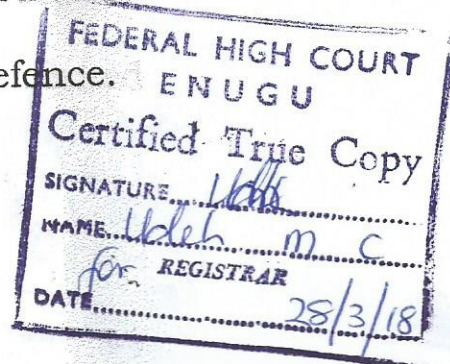 efence.
FEDERAL HIGH COURT
ENUGU
Certified True Copy
SIGNATURE
NAME Udeh M C
for REGISTRAR
DATE 28/3/18